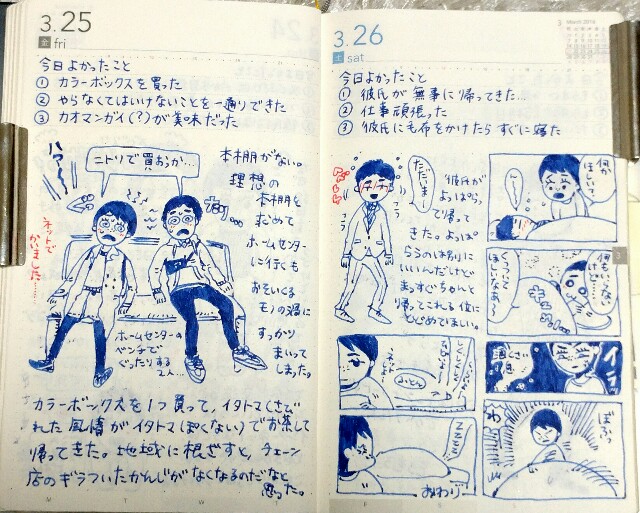 3.25
金 fri
今日よかったこと
① カラーボックスを買った
② やらなくてはいけないことを一通りできた
③ カオマンガイ(?)が美味だった
ハァ〜〜
ニトリで買おうか…
ネットで
かいました……
本棚がない。
理想の
本棚を
求めて
ホームセンター
に行くも
おそいくる
モノの渦に
すっかり
まいって
しまった。
ホームセンターの
ベンチで
ぐったりする
2人…
カラーボックスを1つ買って、イタトマ(さび
れた風情がイタトマぽくない)でお茶して
帰ってきた。地域に根ざすと、チェーン
店のギラついたかんじがなくなるのだなと
思った。
3.26
土 sat
3 March 2016
今日よかったこと
① 彼氏が無事に帰ってきた…
② 仕事頑張った
③ 彼氏に毛布をかけたらすぐに寝た
ただいまー
フラ
フラ
彼氏が
よっぱらっ
て帰って
きた。よっぱ
らうのは別に
いいんだけど
まっすぐちゃんと
帰ってこれる位に
とどめてほしい。
何か
ほしい?
くっついて
ほしいなあ〜
酒くさい
イラッ
ふとん
ぼふっ
おわり
3